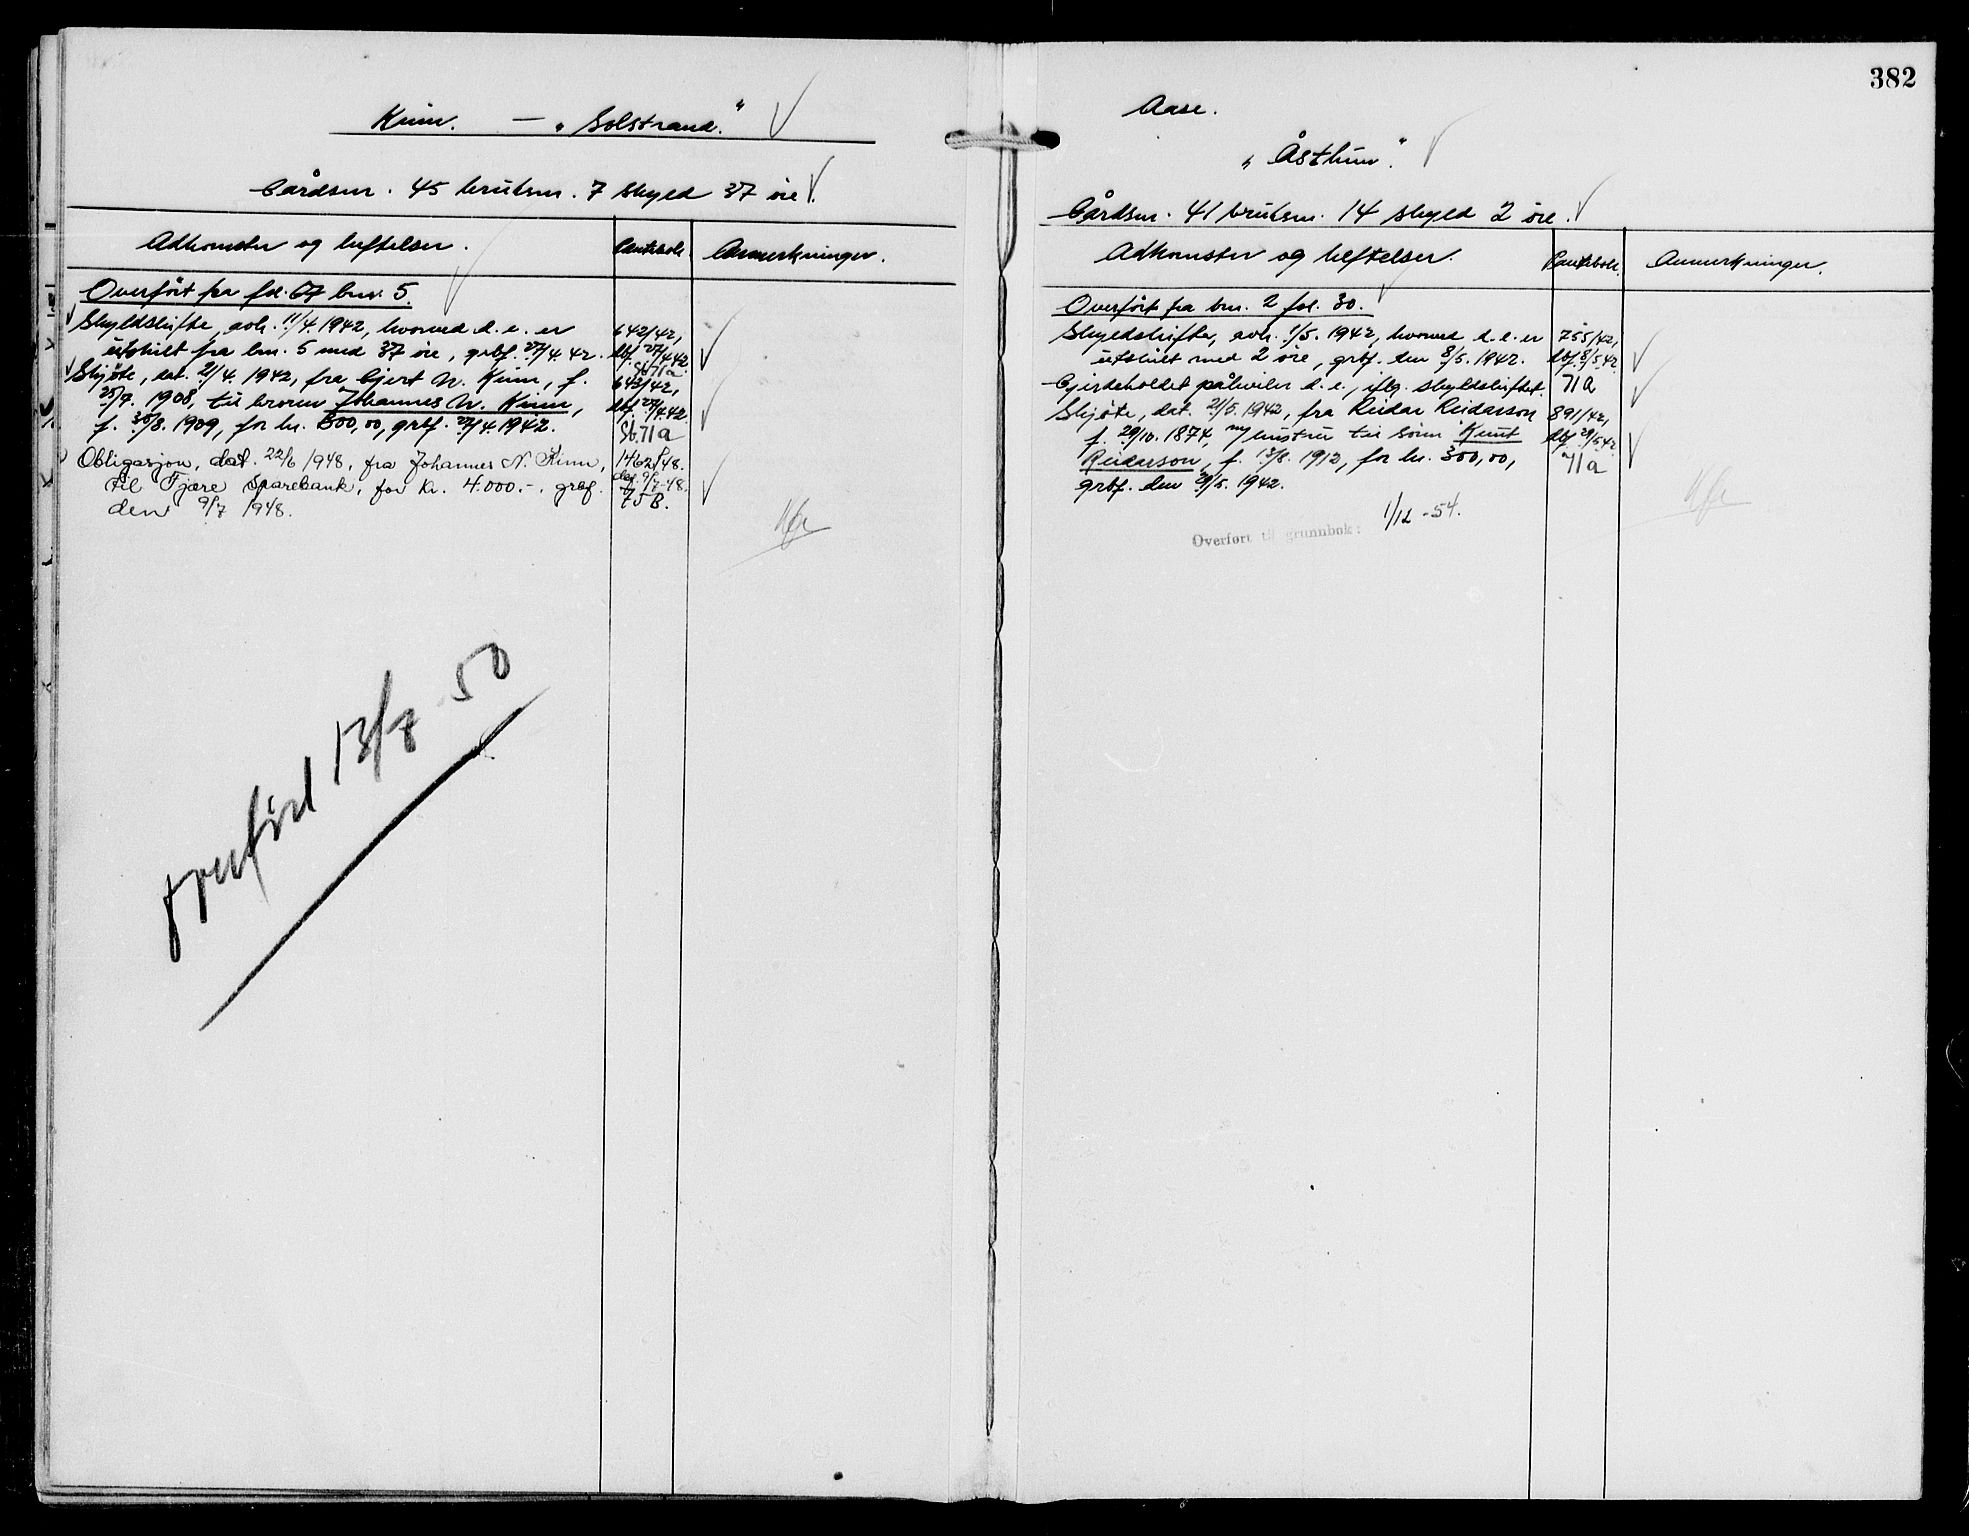 Kinn. — „Solstrand."
Gårdsnr. 45 bruksnr. 7 skyld 37 øre.
Adkomster og heftelser. Pantebok. Anmerkninger.
Overført fra fol. 67 bnr. 5.
Skyldskifte, avh. 11/4. 1942, hvorved d. e. er 642/42,
utskilt fra bnr. 5 med 37 øre, grbf. 27/4. 42. dbf. 27/4 42.
Sb. 71a
Skjøte, dat. 21/4. 1942, fra Gjert N. Kinn, f. 643/42,
25/7. 1908, til broren Johannes N. Kinn, dbf. 27/4 42.
f. 30/8. 1909, for kr. 500,00, grbf. 27/4. 1942. Sb. 71a
Obligasjon, dat. 22/6 1948, fra Johannes N. Kinn, 1462/48.
til Fjære Sparebank, for kr. 4.000.-, grbf. dbf. 9/7-48.
den 9/7 1948. 75B.
13/7 50
382
Aase.
„Åsthun".
Gårdsnr. 41 bruksnr. 14 skyld 2 øre.
Adkomster og heftelser. Pantebok. Anmerkninger.
Overført fra bnr. 2 fol. 30.
Skyldskifte, avh. 1/5. 1942, hvorved d. e. er 755/42,
utskilt med 2 øre, grbf. den 8/5. 1942. dbf. 8/5 42.
Gjerdeholdet påhviler d. e., iflg. skyldskiftet. 71a
Skjøte, dat. 21/5. 1942, fra Reidar Reidarson 891/42,
f. 29/10. 1874, m/ hustru til sønn Knut dbf. 29/5 42.
Reidarson, f. 13/8. 1912, for kr. 300,00, 71a
grbf. den 29/5. 1942.
Overført til grunnbok: 1/12 -54.